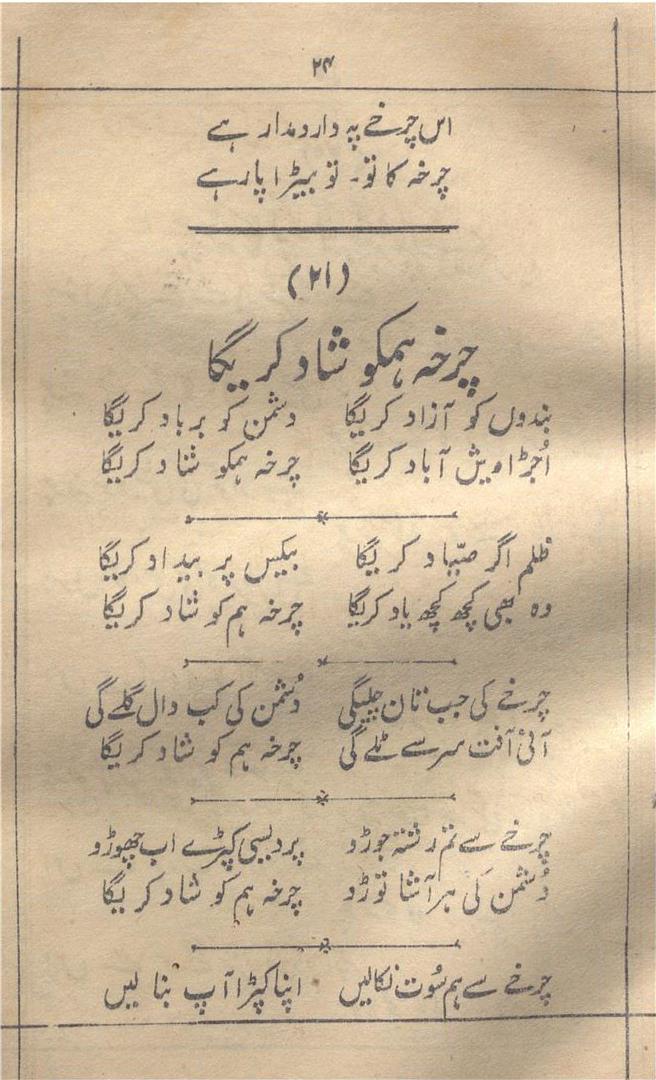 ۲۴
اس چرخے پہ دارومدار ہے
چرخہ کاتو۔ تو بیڑا پار ہے
(۲۱)
چرخہ ہمکو شاد کریگا
بندوں کو آزاد کریگا دشمن کو برباد کریگا
اُجڑا دیش آباد کریگا چرخہ ہمکو شاد کریگا
ظلم اگر صیّاد کریگا بیکس پر بیداد کریگا
وہ بھی کچھ کچھ یاد کریگا چرخہ ہم کو شاد کریگا
چرخے کی جب تان چلیگی دُشمن کی کب دال گلے گی
آئی آفت سر سے ٹلے گی چرخہ ہم کو شاد کریگا
چرخے سے تم رشتہ جوڑو پردیسی کپڑے اب چھوڑو
دُشمن کی ہر آشا توڑو چرخہ ہم کو شاد کریگا
چرخے سے ہم سُوت نکالیں اپنا کپڑا آپ بنا لیں